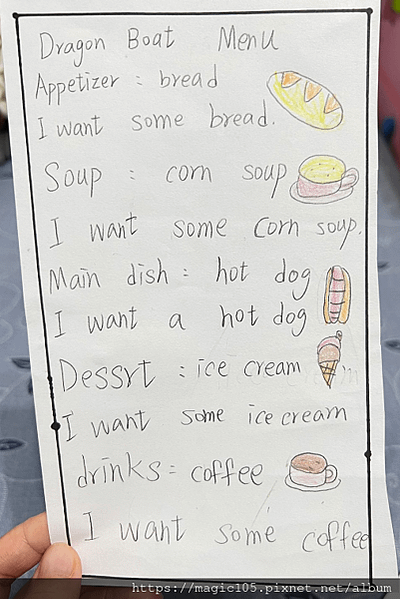 Dragon Boat Menu
Appetizer : bread
I want some bread.
Soup : corn soup
I want some corn soup.
Main dish : hot dog
I want a hot dog
Dessrt : ice cream
I want some ice cream
drinks : coffee
I want some coffee
https://magic105.pixnet.net/album